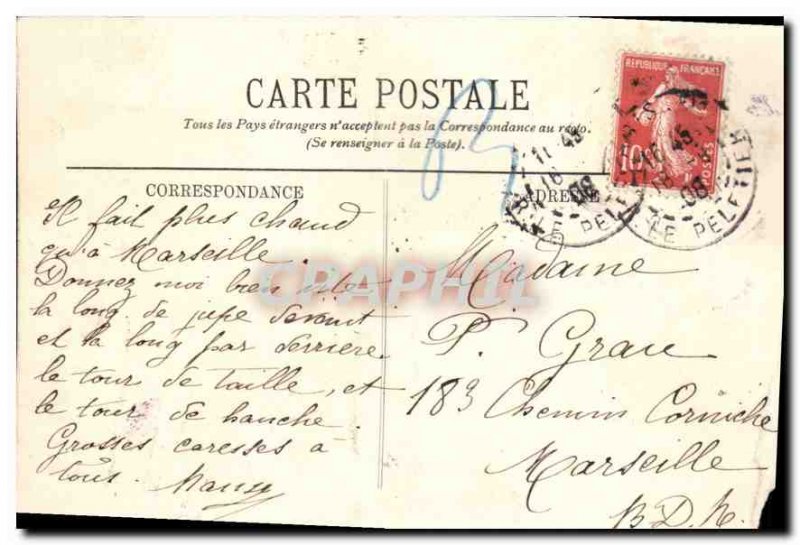 CARTE POSTALE
Tous les Pays étrangers n'acceptent pas la Correspondance au recto.
(Se renseigner à la Poste).
REPUBLIQUE FRANÇAISE
10
POSTES
11 45
16
08
LE PELETIER
CORRESPONDANCE
ADRESSE
Il fait plus chaud
qu'à Marseille.
Donnez moi bien vite
la long. de jupe devant
et la long par derrière
le tour de taille, et
le tour de hanche.
Grosses caresses à
tous.
Madame
P. Grau
183 Chemin Corniche
Marseille
B.D.R.
CPAPHIL